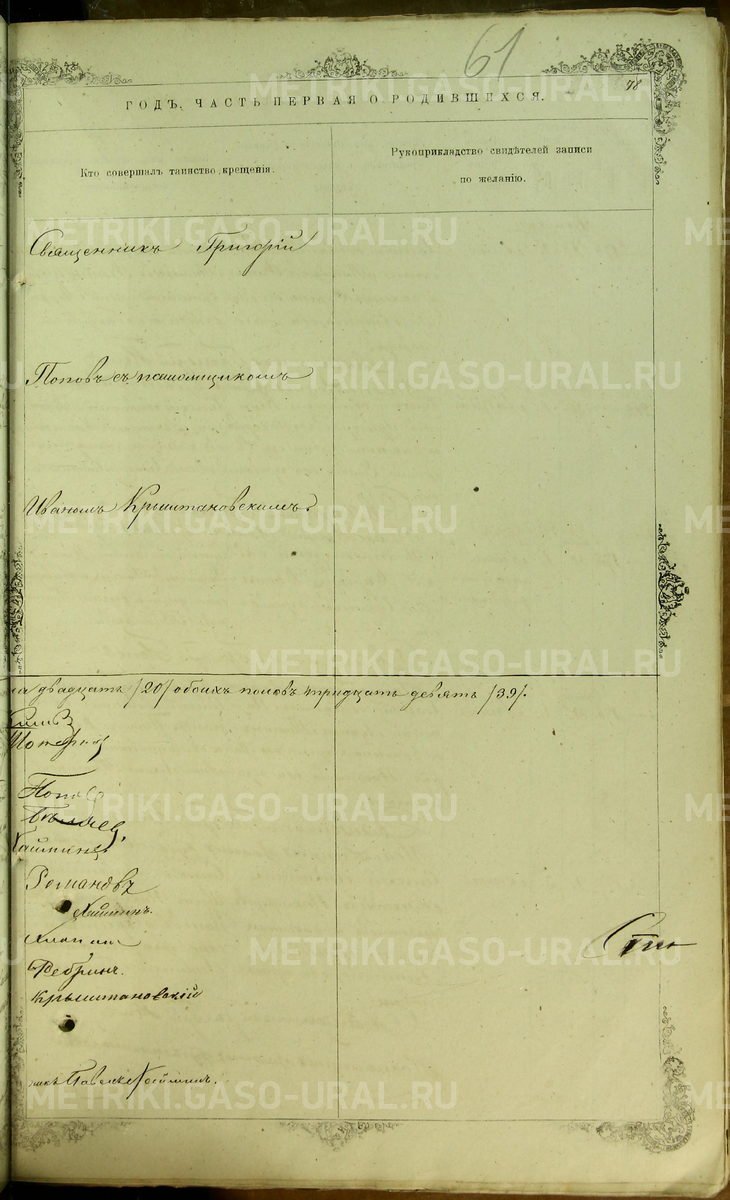 61
78
ГОДЪ, ЧАСТЬ ПЕРВАЯ О РОДИВШИХСЯ.
Кто совершалъ таинство крещенія.
Рукоприкладство свидѣтелей записи
по желанію.
Священникъ Григорій
Поповъ съ псаломщикомъ
Иваномъ Крыштановскимъ.
двадцать /20/ обоихъ половъ тридцать девять /39/.
Попов
Бѣляев
Романовъ
Хайминъ.
Ребринъ.
Крыштановскій
METRIKI.GASO-URAL.RU